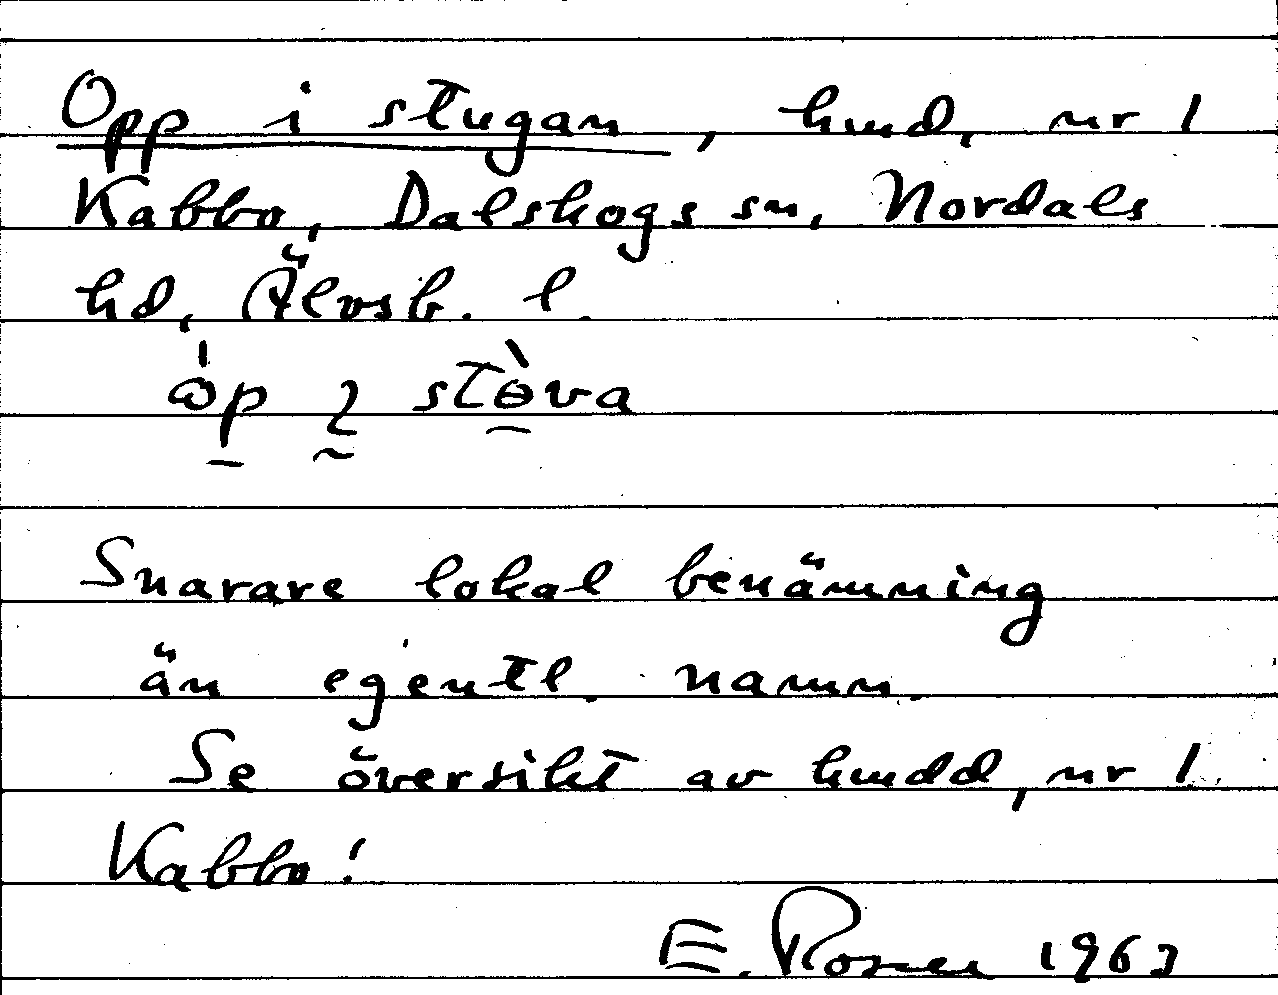 Opp i stugan, hmd, nr 1
Kabbo, Dalskogs sn, Nordals
hd, Älvsb. l.
Snarare lokal benämning
än egentl. namn.
Se översikt av hmdd, nr 1
Kabbo!
E. Rosner 1963